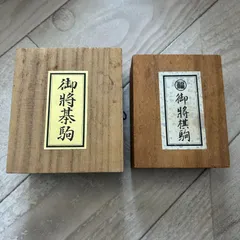 御將棊駒
御將棋駒